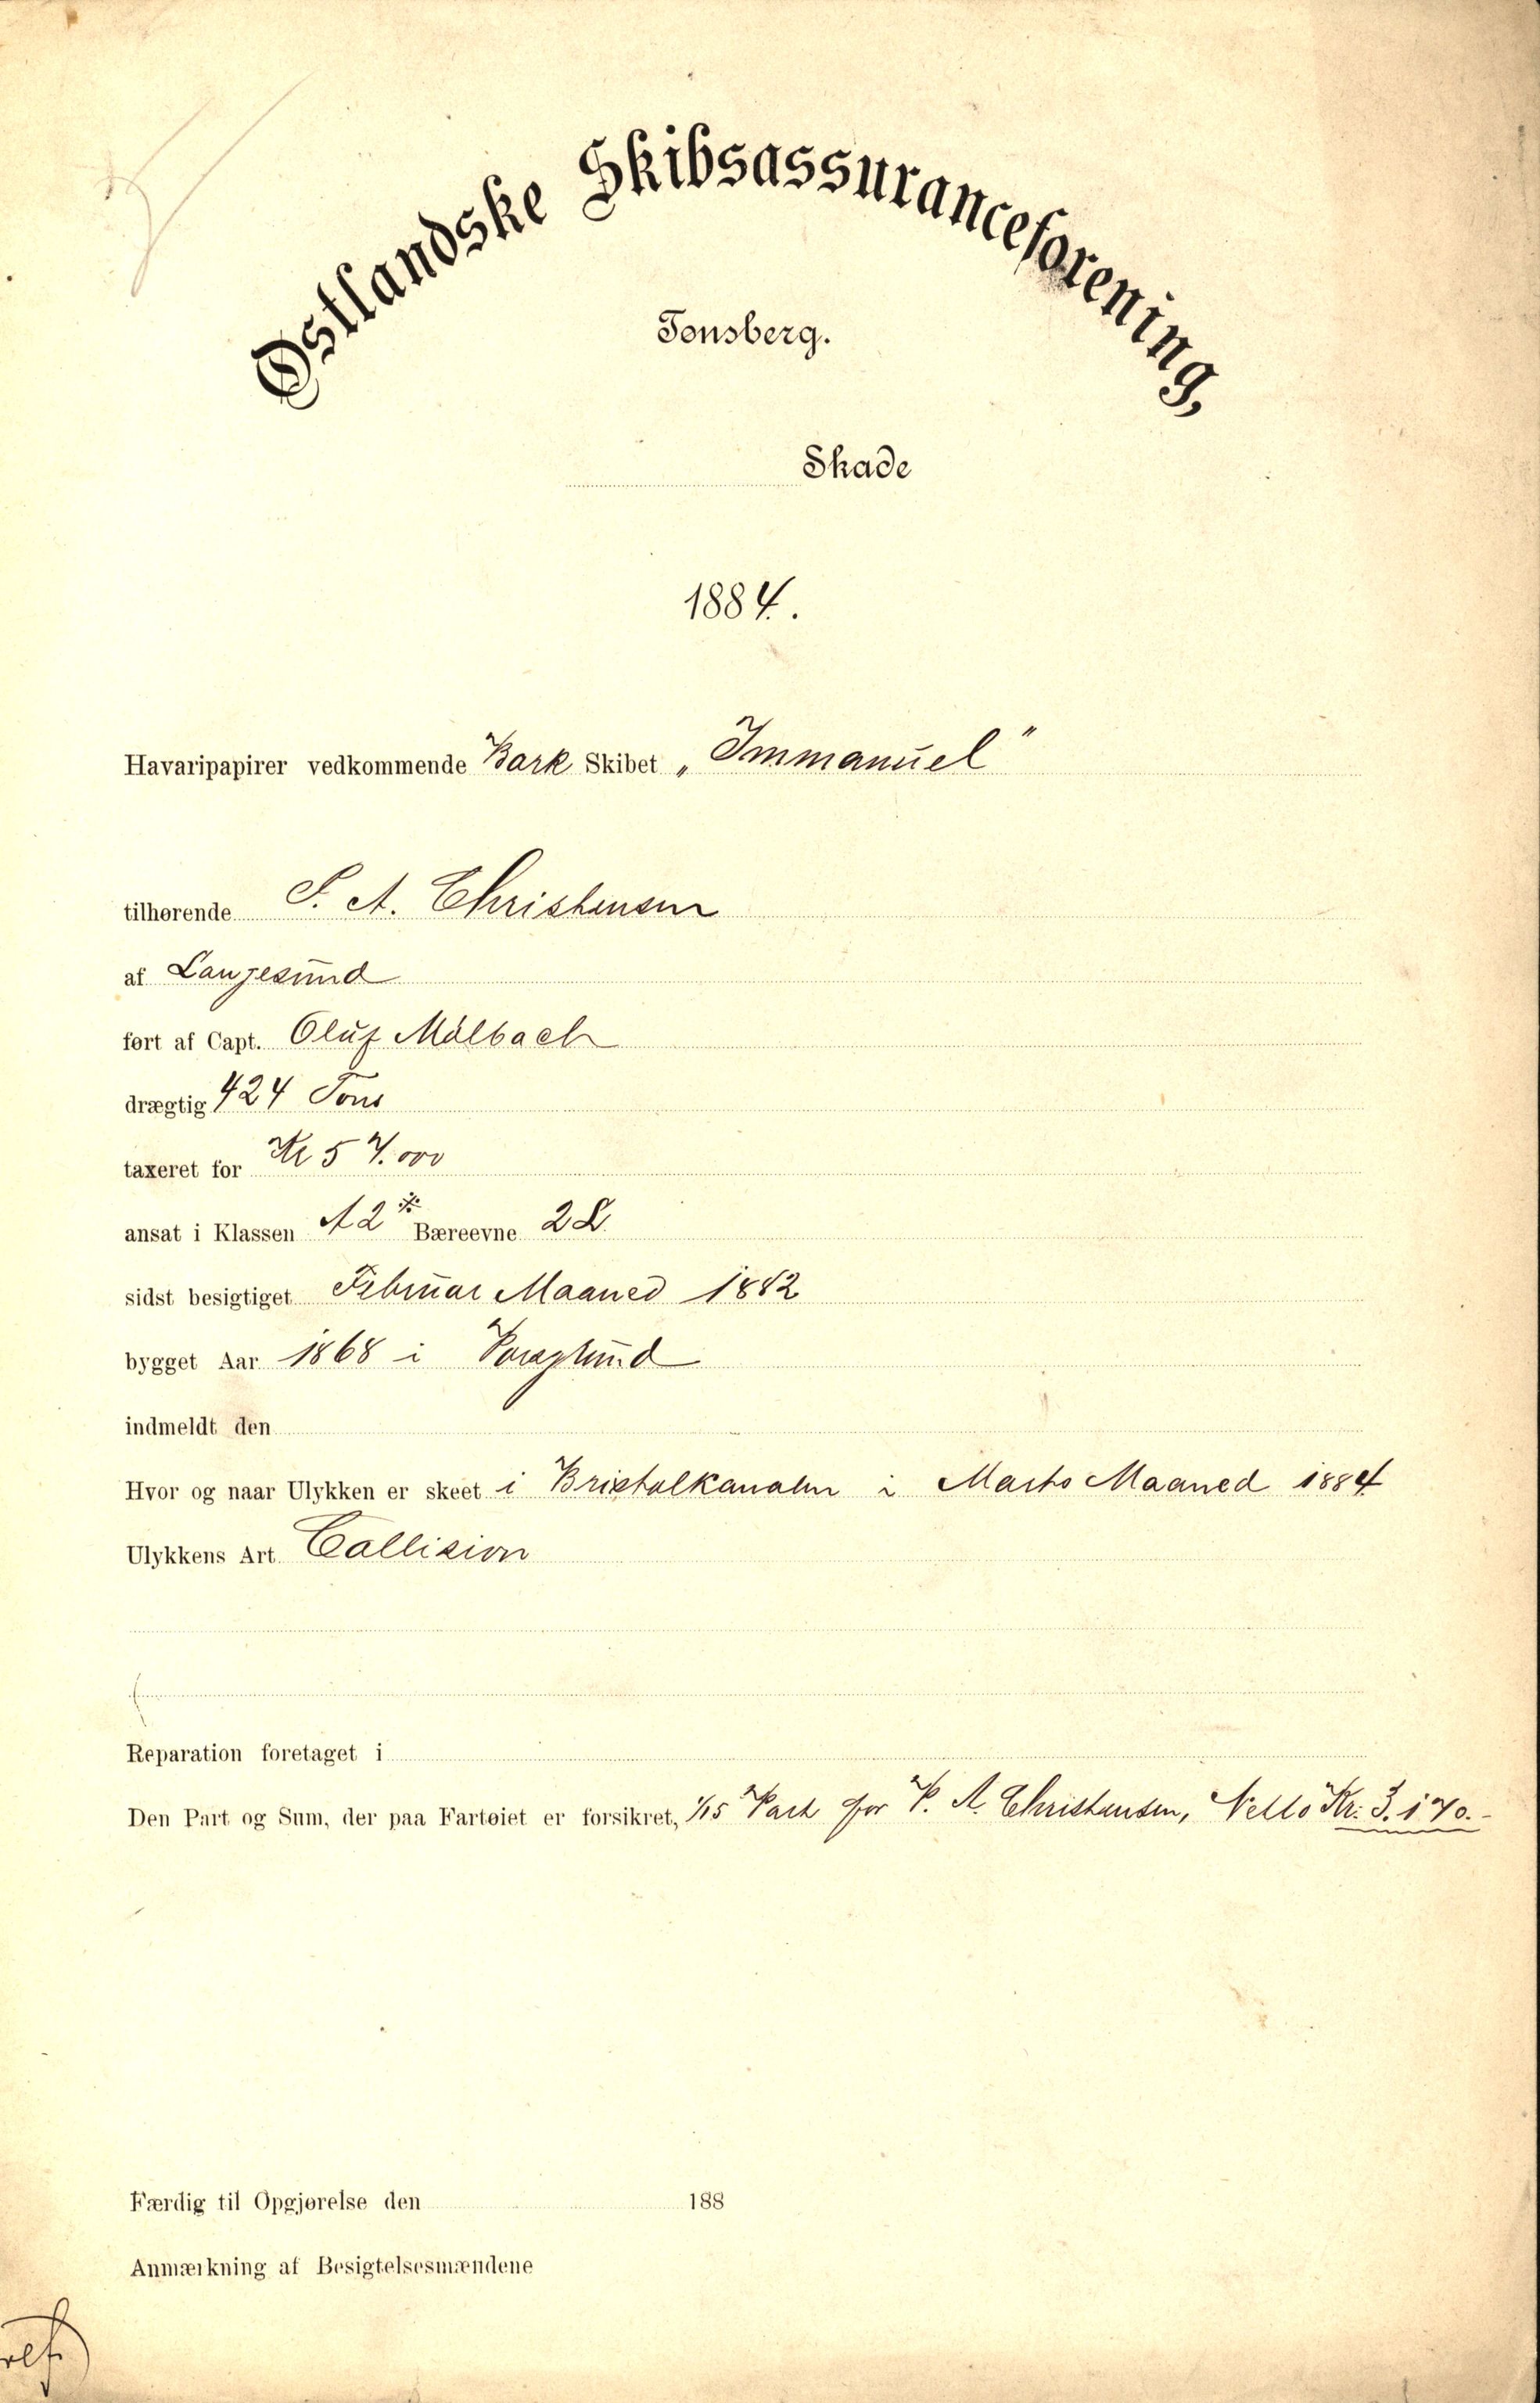 Østlandske Skibsassuranceforening,
Tønsberg.
Skade
1884.
Havaripapirer vedkommende Bark Skibet „Immanuel"
tilhørende S. A. Christensen
af Langesund
ført af Capt. Oluf Mølbach
drægtig 424 Tons
taxeret for Kr 57.000
ansat i Klassen A2 Bæreevne 2 L
sidst besigtiget Februar Maaned 1882
bygget Aar 1868 i Porsgrund
indmeldt den
Hvor og naar Ulykken er skeet i Bristolkanalen i Marts Maaned 1884
Ulykkens Art Collision
Reparation foretaget i
Den Part og Sum, der paa Fartøiet er forsikret, 1/15 Part for P. A. Christensen, Netto Kr. 3.170.-
Færdig til Opgjørelse den 188
Anmærkning af Besigtelsesmændene